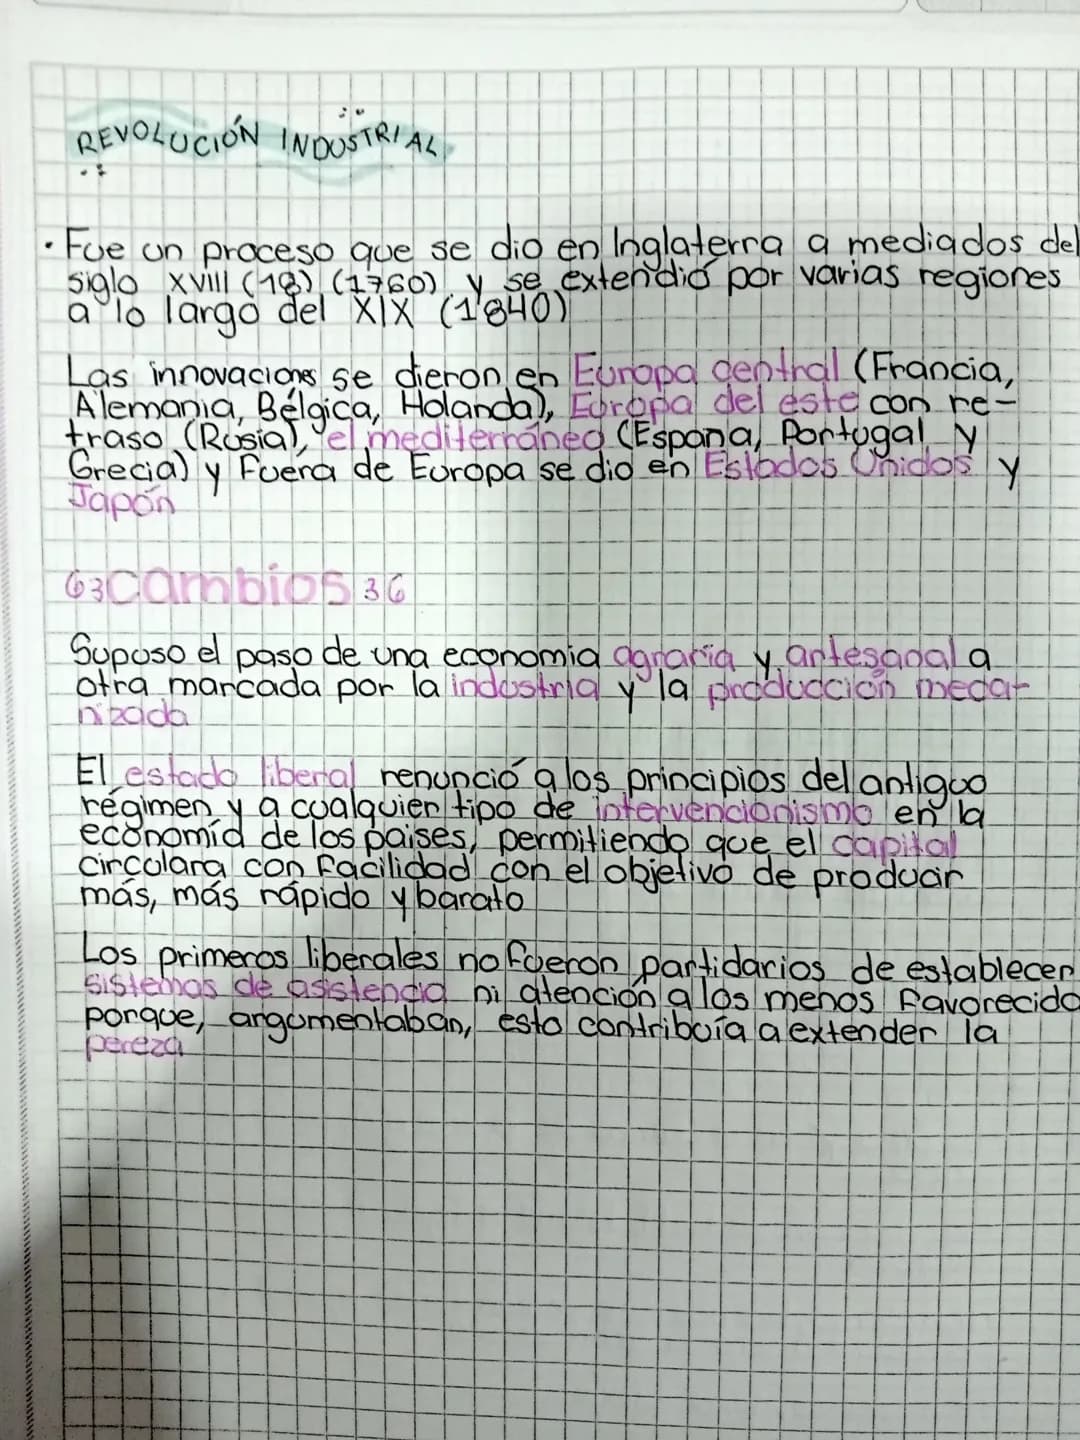 REVOLUCIÓN INDUSTRIAL
• Fue un proceso que se dio en Inglaterra a mediados del
siglo XVIII (18) (1760) y se extendió por varias regiones
a lo largo del XIX (1840)
Las innovaciones se dieron en Europa central (Francia,
Alemania, Bélgica, Holanda), Europa del este con re-
traso (Rusia), el mediterráneo (España, Portugal y
Grecia) y Fuera de Europa se dio en Estados Unidos y
Japón
63 cambios 36
Supuso el paso de una economia agraria y artesanal a
otra marcada por la industria y la producción meca-
nizada
El estado liberal renunció a los principios del antiguo
régimen y a cualquier tipo de intervencionismo en la
economía de los paises, permitiendo que el capital
circulara con facilidad con el objetivo de producir
más, más rápido y barato
Los primeros liberales no fueron partidarios de establecer
sistemas de asistencia ni atención a los menos favorecido
porque, argumentaban, esto contribuía a extender la
pereza